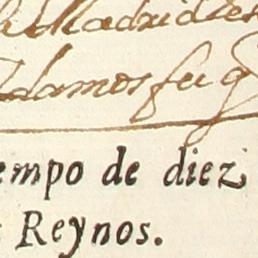 Madrid
damos fe q
empo de diez
Reynos.